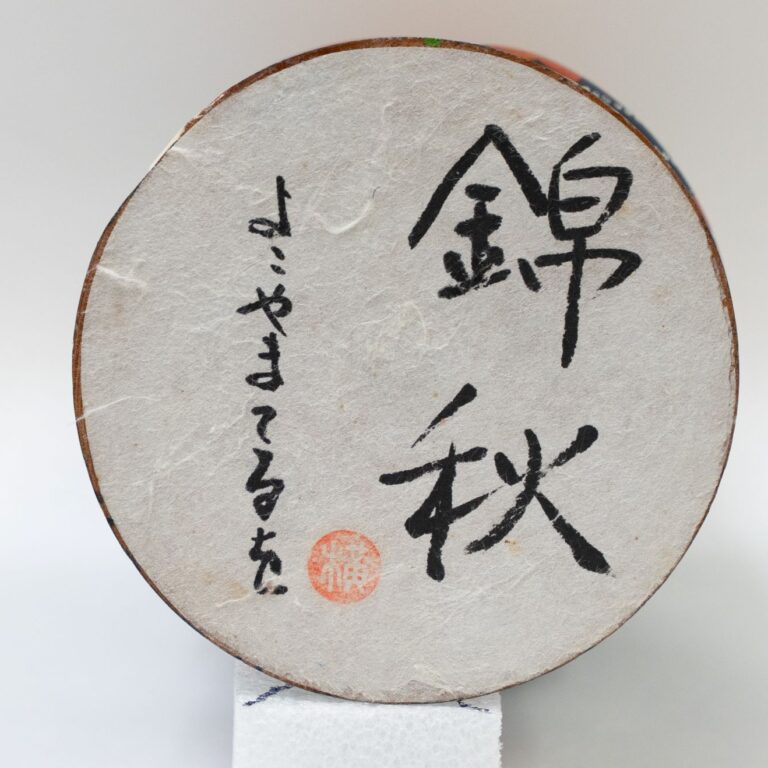 錦秋
よこやまてるを
横